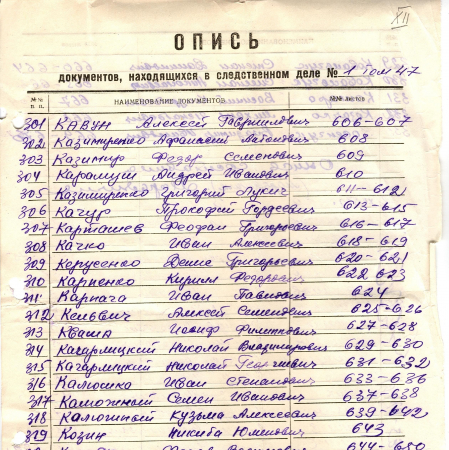 XII
ОПИСЬ
документов, находящихся в следственном деле № 1 том 47
№№ п. п. НАИМЕНОВАНИЕ ДОКУМЕНТОВ №№ листов
301 Кавун Алексей Гаврилович 606-607
302 Казимренко Афанасий 608
303 Казимир Федор Семенович 609
304 Карамуш Андрей Иванович 610
305 Казимиренко Григорий Лукич 611-612
306 Качур Прокофей Гордеевич 613-615
307 Карташев Феофан Григорьевич 616-617
308 Качко Иван Алексеевич 618-619
309 Керусенко Денис Григорьевич 620-621
310 Карпенко Кирилл Федорович 622 623
311 Карнага Иван Павлович 624
312 Алексей Семенович 625-626
313 Кваша Иосиф Филиппович 627-628
314 Кагарлицкий Николай Владимирович 629-630
315 Кагарлицкий Николай Георгиевич 631-632
316 Калюсика Иван Степанович 633-636
317 Каможный Семен Иванович 637-638
318 Калюжный Кузьма Алексеевич 639-642
319 Козин Никита Юменович 643
644-650